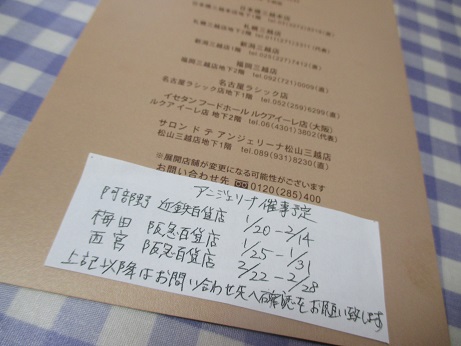 日本橋三越本店
札幌三越店
新潟三越店
新潟三越地下1階 tel 025(227)
福岡三越店
福岡三越地下2階 tel 092(721)6009(直)
名古屋ラシック店
名古屋ラシック店地下1階 tel 052(259)6295(直)
イセタン フードホール ルクアイーレ店(大阪)
ルクア イーレ店 地下2階 tel 06(4301)3802(代表)
サロン ド テ アンジェリーナ松山三越店
松山三越店地下1階 tel.089(931)8230(直)
※展開店舗が変更になる可能性がございます
お問い合わせ先 0120(285)400
アンジェリーナ催事予定
阿部野 近鉄百貨店 1/20-2/14
梅田 阪急百貨店 1/25-1/31
西宮 阪急百貨店 2/22-2/28
上記以降はお問い合わせ先へ確認をお願い致します